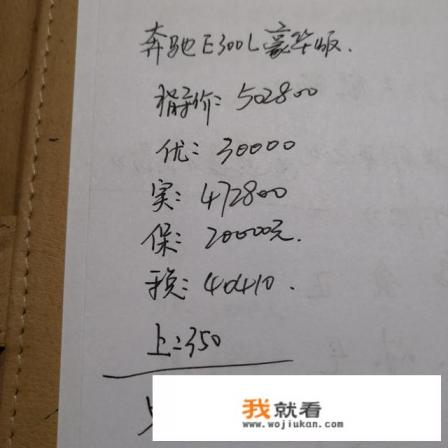 奔驰E300L豪华版.
指导价: 502800
优: 30000
实: 472800
保: 20000元.
税: 40410.
上: 350
我就看
www.wojiukan.com